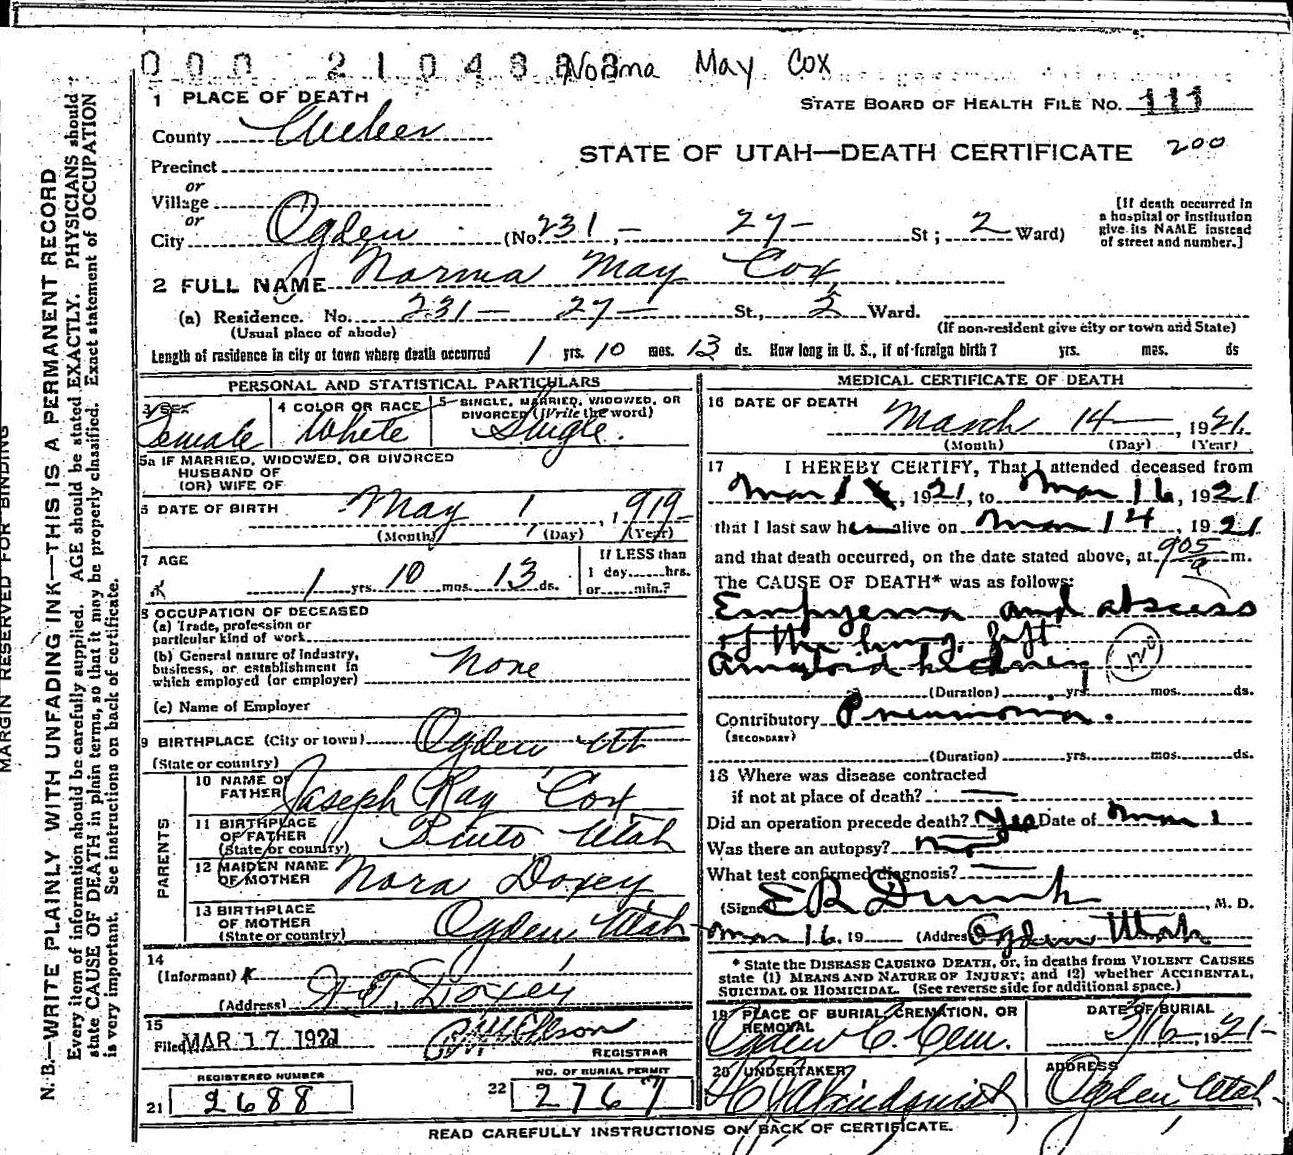 MARGIN RESERVED FOR BINDING
N. B.—WRITE PLAINLY WITH UNFADING INK—THIS IS A PERMANENT RECORD
Every item of information should be carefully supplied. AGE should be stated EXACTLY. PHYSICIANS should
state CAUSE OF DEATH in plain terms, so that it may be properly classified. Exact statement of OCCUPATION
is very important. See instructions on back of certificate.
Norma May Cox
1 PLACE OF DEATH
STATE BOARD OF HEALTH FILE No. 111
County Weber
STATE OF UTAH—DEATH CERTIFICATE 200
Precinct
or
Village
or
City Ogden (No. 231 - 27 - St; 2 Ward)
[If death occurred in
a hospital or institution
give its NAME instead
of street and number.]
2 FULL NAME Norma May Cox
(a) Residence. No. 231 - 27 - St., 2 Ward.
(Usual place of abode) (If non-resident give city or town and State)
Length of residence in city or town where death occurred 1 yrs. 10 mos. 13 ds. How long in U. S., if of foreign birth? yrs. mos. ds
PERSONAL AND STATISTICAL PARTICULARS
3 SEX Female
4 COLOR OR RACE White
5 SINGLE, MARRIED, WIDOWED, OR
DIVORCED (Write the word)
Single.
5a IF MARRIED, WIDOWED, OR DIVORCED
HUSBAND OF
(OR) WIFE OF
6 DATE OF BIRTH May 1, 1919
(Month) (Day) (Year)
7 AGE
1 yrs 10 mos. 13 ds.
If LESS than
1 day......hrs.
or......min.?
8 OCCUPATION OF DECEASED
(a) Trade, profession or
particular kind of work
(b) General nature of industry,
business, or establishment in
which employed (or employer) None
(c) Name of Employer
9 BIRTHPLACE (City or town) Ogden Ut
(State or country)
PARENTS
10 NAME OF
FATHER Joseph Ray Cox
11 BIRTHPLACE
OF FATHER
(State or country) Pinto Utah
12 MAIDEN NAME
OF MOTHER Nora Doxey
13 BIRTHPLACE
OF MOTHER
(State or country) Ogden Utah
14
(Informant)
(Address)
Doxey
15
Filed MAR 17 1921
REGISTRAR
REGISTERED NUMBER
21 2688
NO. OF BURIAL PERMIT
22 2767
MEDICAL CERTIFICATE OF DEATH
16 DATE OF DEATH
March 14, 1921.
(Month) (Day) (Year)
17 I HEREBY CERTIFY, That I attended deceased from
Mar 1, 1921, to Mar 16, 1921
that I last saw her alive on Mar 14, 1921
and that death occurred, on the date stated above, at 905 a m.
The CAUSE OF DEATH* was as follows:
Empyema and abscess
of the lung, left
Amyloid kidney 120
(Duration) yrs. mos. ds.
Contributory Pneumonia.
(SECONDARY)
(Duration) yrs. mos. ds.
18 Where was disease contracted
if not at place of death?
Did an operation precede death? Yes Date of Mar 1
Was there an autopsy?
What test confirmed diagnosis?
(Signed) E R Dumke, M. D.
Mar 16, 19 (Address) Ogden Utah
* State the DISEASE CAUSING DEATH, or, in deaths from VIOLENT CAUSES
state (1) MEANS AND NATURE OF INJURY; and (2) whether ACCIDENTAL,
SUICIDAL OR HOMICIDAL. (See reverse side for additional space.)
19 PLACE OF BURIAL, CREMATION, OR
REMOVAL
Ogden C. Cem.
DATE OF BURIAL
3/16, 1921
20 UNDERTAKER
ADDRESS
Ogden, Utah
READ CAREFULLY INSTRUCTIONS ON BACK OF CERTIFICATE.